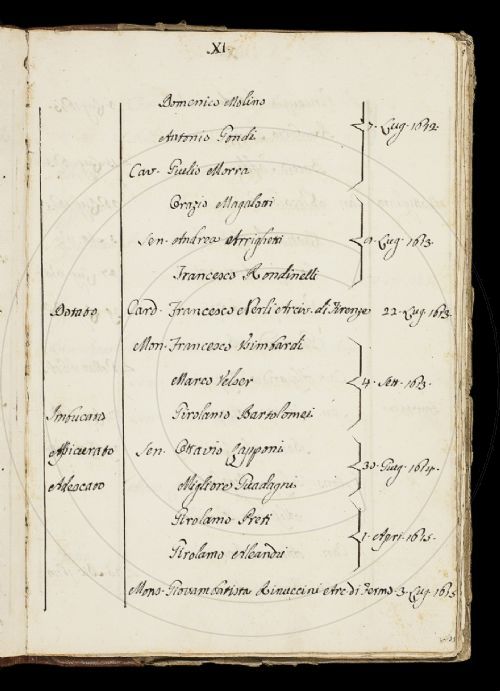 XI.
Domenico Molino
Antonio Gondi 7. Lug. 1642.
Cav. Giulio Morra
Orazio Magalotti
Sen. Andrea Arrighetti 9. Lug. 1613.
Francesco Rondinelli
Dotato Card. Francesco Nerli Arciv. di Firenze 22. Lug. 1613.
Mon. Francesco Bimbardi
Marco Velser 4. Sett. 1613.
Imbucato Girolamo Bartolomei
Apicurato Sen. Ottavio Capponi 30. Giug. 1614.
Adescato Migliore Guadagni
Girolamo Preti 1. Apri. 1615.
Girolamo Aleandri
Mons. Giovambatista Rinuccini Arc. di Fermo 3. Lug. 1615